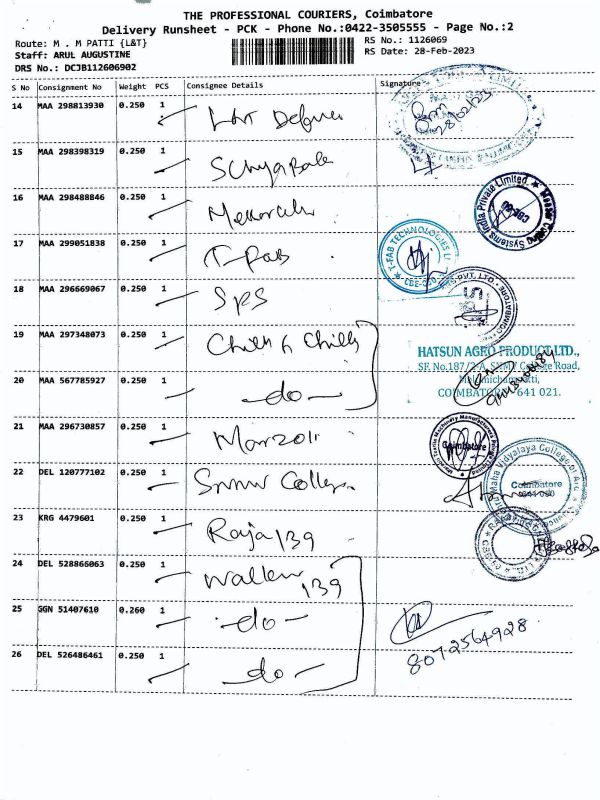 THE PROFESSIONAL COURIERS, Coimbatore
Delivery Runsheet - PCK - Phone No.:0422-3505555 - Page No.:2
Route: M . M PATTI {L&T}
RS No.: 1126069
Staff: ARUL AUGUSTINE
RS Date: 28-Feb-2023
DRS No.: DCJB112606902
S No Consignment No Weight PCS Consignee Details Signature
14 MAA 298813930 0.250 1 L&T Defence
28/02/23
15 MAA 298398319 0.250 1
16 MAA 298488846 0.250 1
Tooling Systems India Private Limited
17 MAA 299051838 0.250 1 T-Fab
T-FAB TECHNOLOGIES
CBE-050
18 MAA 296669067 0.250 1 SPS
PVT. LTD. COIMBATORE
19 MAA 297348073 0.250 1
HATSUN AGRO PRODUCT LTD.,
SF. No.187/2-A, SNMV College Road,
20 MAA 567785927 0.250 1 -do-
COIMBATORE - 641 021.
21 MAA 296730857 0.250 1 Marzoli
Coimbatore
22 DEL 120777102 0.250 1 Snmv College
Maha Vidyalaya College of Arts
Coimbatore
23 KRG 4479601 0.250 1 Raja 139
24 DEL 528866063 0.250 1 139
25 GGN 51407610 0.260 1 -do-
8072564928
26 DEL 526486461 0.250 1 -do-